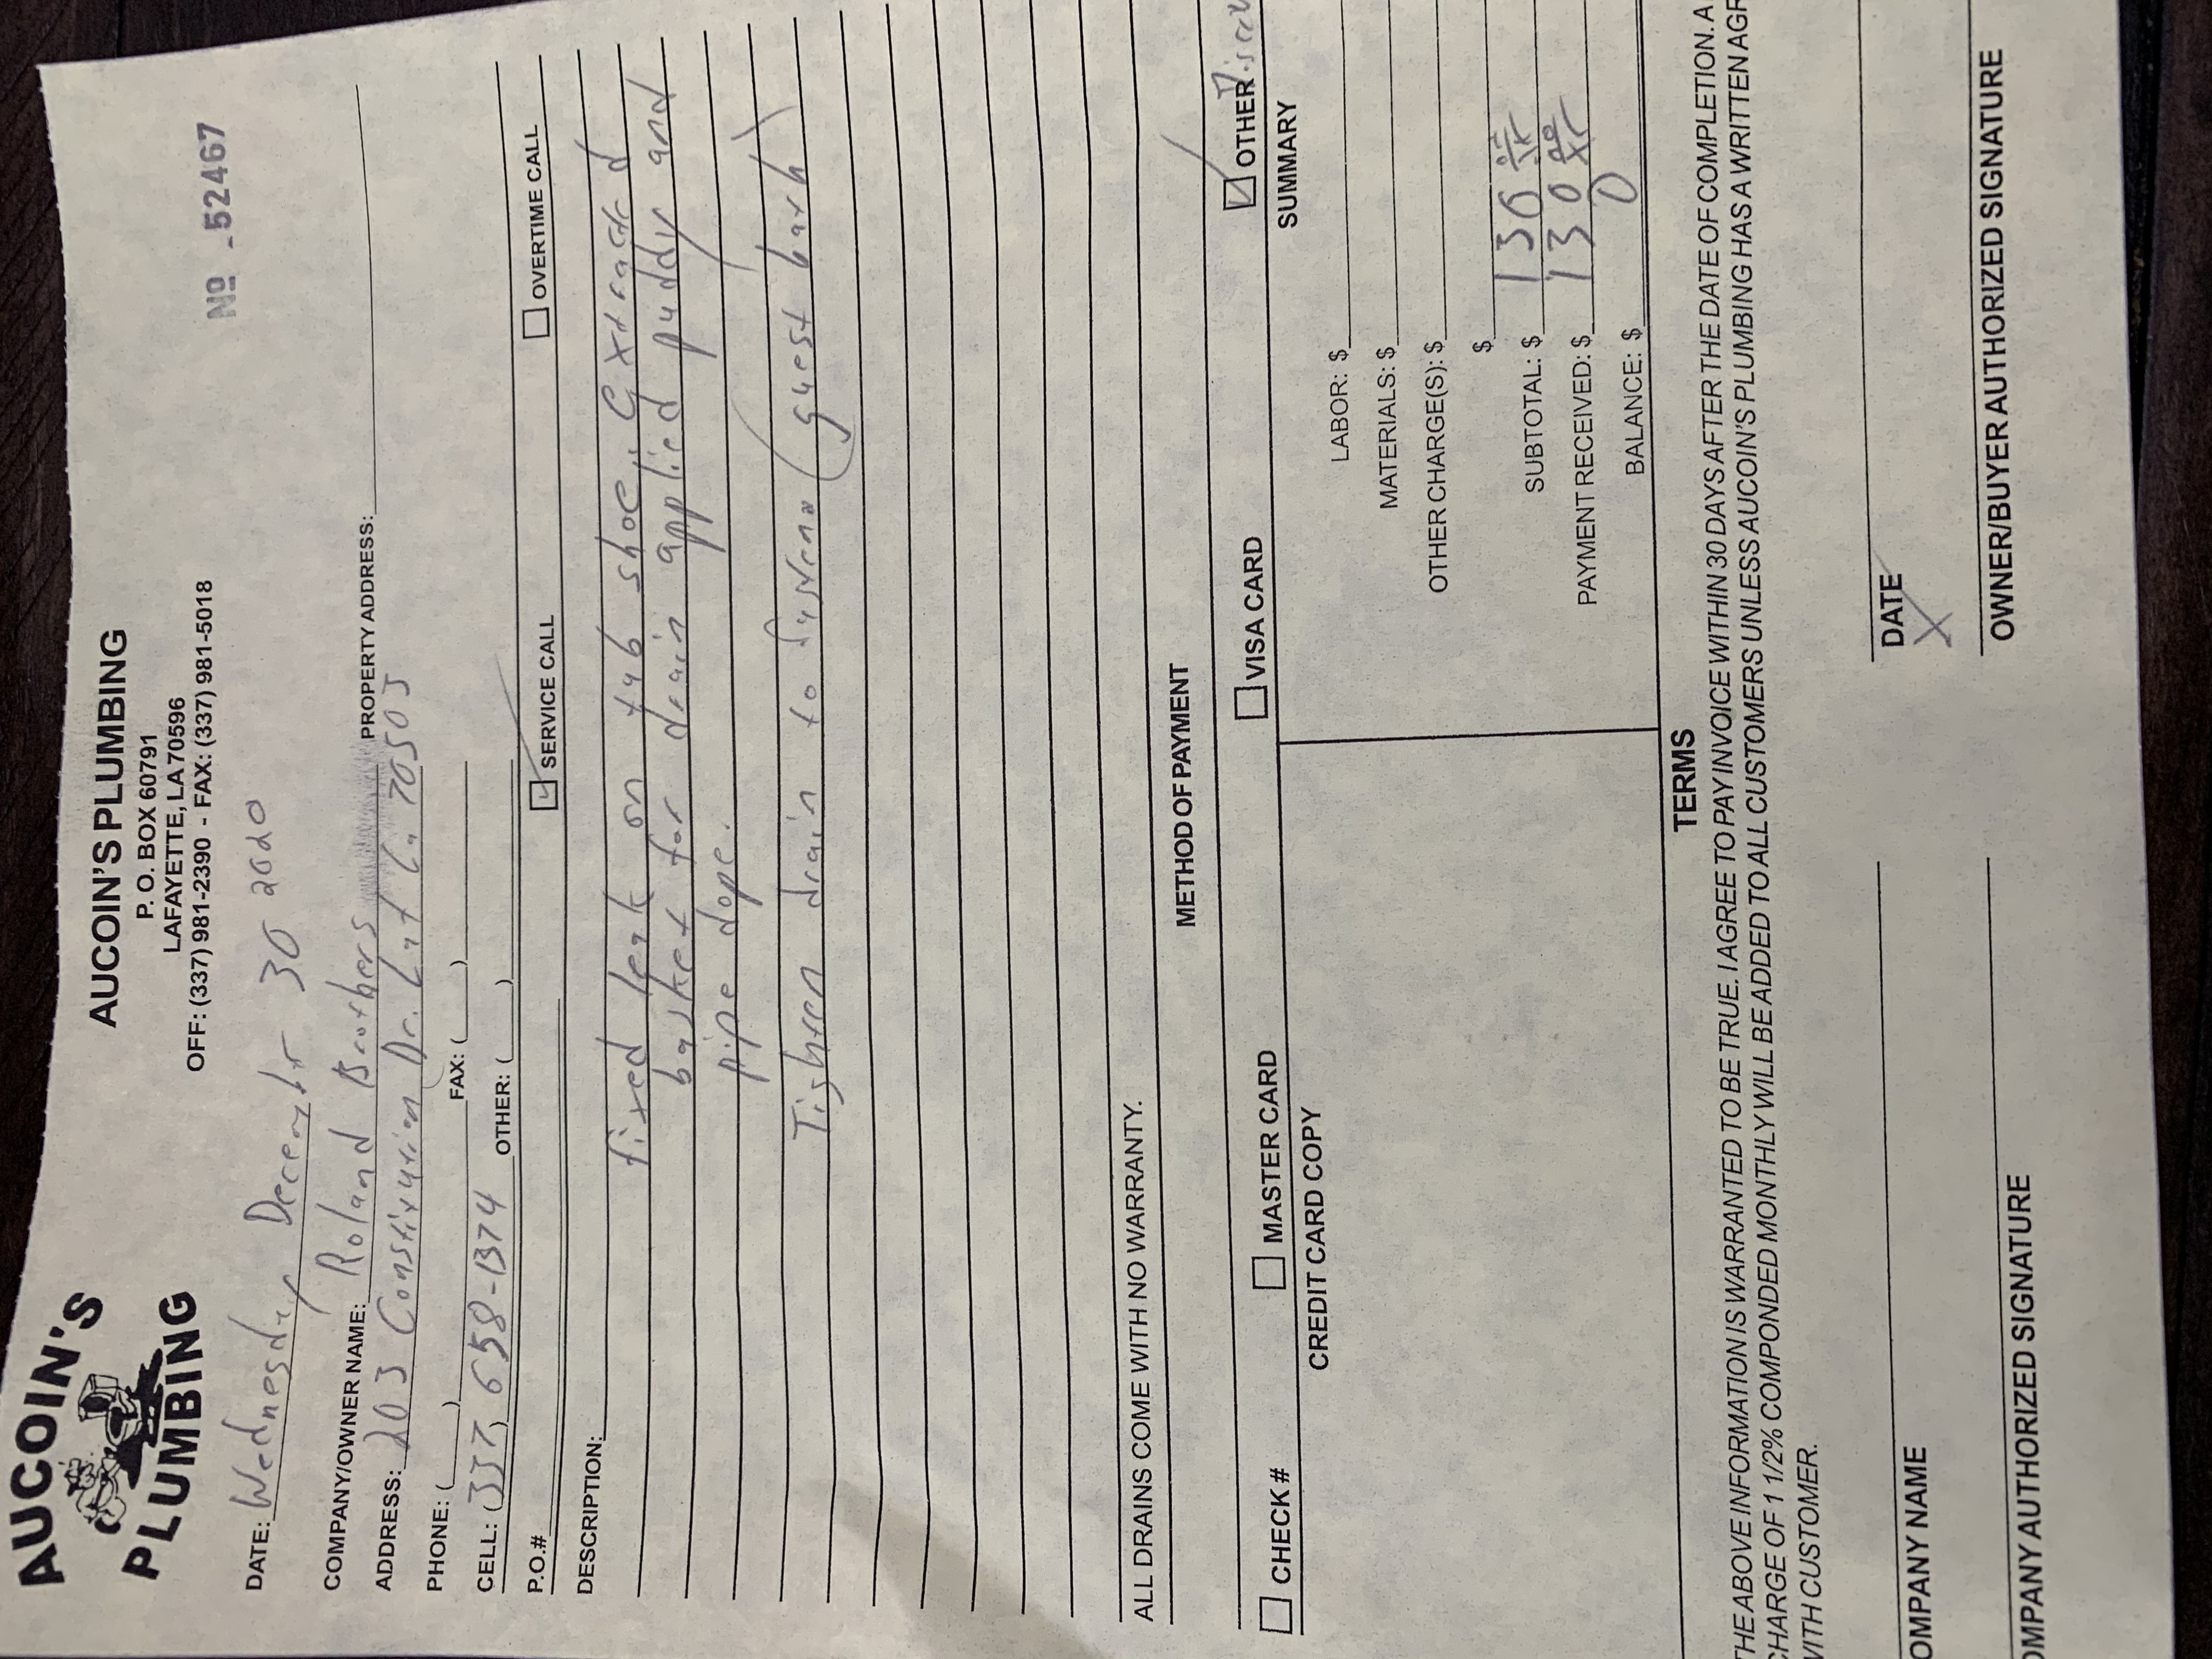 AUCOIN'S
PLUMBING
AUCOIN'S PLUMBING
P. O. BOX 60791
LAFAYETTE, LA 70596
OFF: (337) 981-2390 - FAX: (337) 981-5018
No 52467
DATE: Wednesday December 30 2020
COMPANY/OWNER NAME: Roland Brothers PROPERTY ADDRESS:
ADDRESS: 203 Constitution Dr. Laf La 70503
PHONE: ( ) FAX: ( )
CELL: (337) 658-1374 OTHER: ( )
P.O.# SERVICE CALL OVERTIME CALL
DESCRIPTION:
fixed leak on tub shoe. Extracted
basket for drain applied puddy and
pipe dope.
Tighten drain to (guest bath)
ALL DRAINS COME WITH NO WARRANTY.
METHOD OF PAYMENT
CHECK # MASTER CARD VISA CARD OTHER
CREDIT CARD COPY
SUMMARY
LABOR: $
MATERIALS: $
OTHER CHARGE(S): $
$
SUBTOTAL: $ 130
PAYMENT RECEIVED: $ 130
BALANCE: $ 0
TERMS
THE ABOVE INFORMATION IS WARRANTED TO BE TRUE. I AGREE TO PAY INVOICE WITHIN 30 DAYS AFTER THE DATE OF COMPLETION. A
CHARGE OF 1 1/2% COMPONDED MONTHLY WILL BE ADDED TO ALL CUSTOMERS UNLESS AUCOIN'S PLUMBING HAS A WRITTEN AGR
WITH CUSTOMER.
OMPANY NAME
DATE
X
OMPANY AUTHORIZED SIGNATURE
OWNER/BUYER AUTHORIZED SIGNATURE